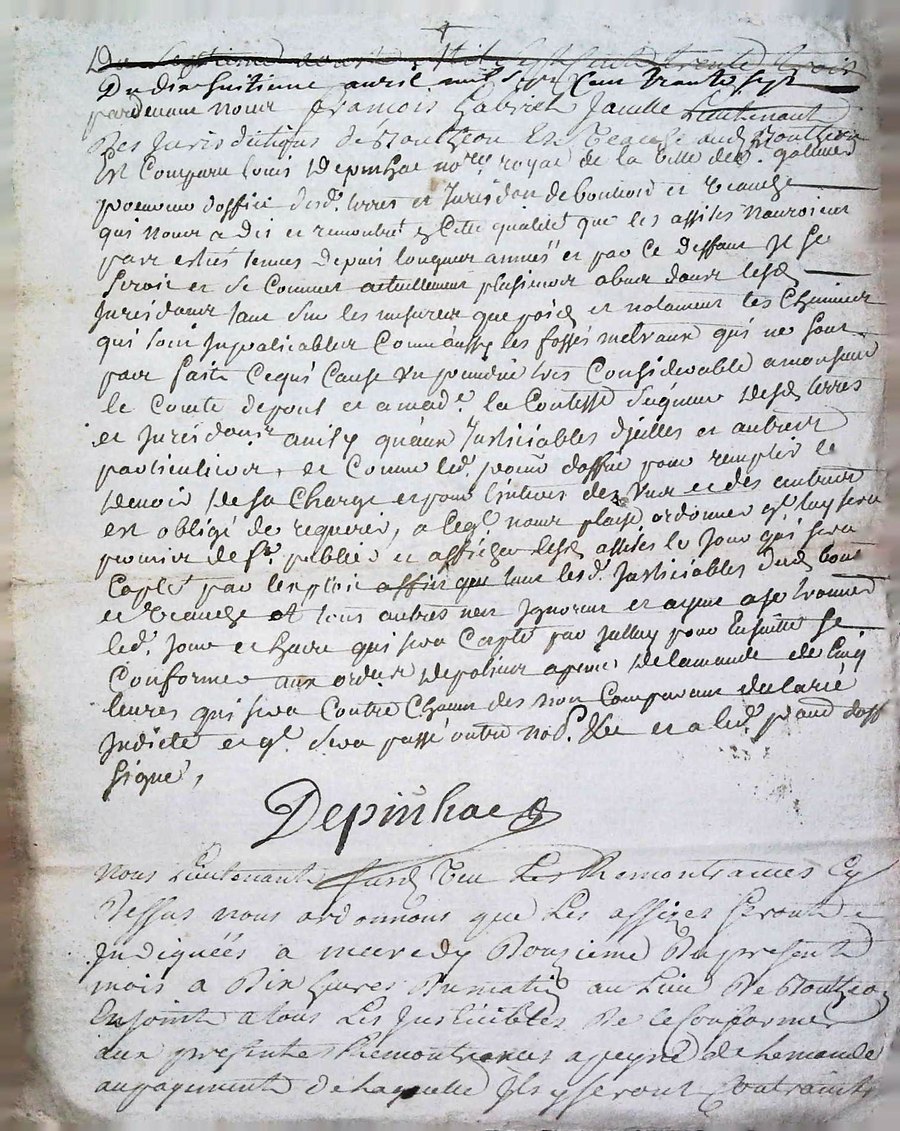 Du dix huitieme avril mil sept cent trente sept
pardevant nous françois Gabriel Jamelle Lieutenant
Des Jurisdictions de Bouttheon Et
Est Comparu Louis Depinhac no.re royal de la Ville de S.t galmier
d'office desd. terres et Jurisdon de bouteon et
qui nous a dit et remontré q Cette qualité que les assises n'auroient
pas estées tenues depuis longues années et par ce deffaut Il se
seroit et se Commet actuellement plusieurs abus dans lesd
Jurisdons tant sur les mesures que poids et notament les Chemins
qui sont Inpraticables Comm'aussy les fossés qui ne sont
pas faits Cequi Cause un prejudice tres Considerable a monsieur
le Comte depons et a mad.e la Contesse Seigneur desd terres
et Jurisdons ainsy qu'aux Justiciables d'jcelles et autres
particuliers, et Comme led. d'office pour remplir le
devoir de sa Charge et pour l'interet des uns et des autres
est obligé de requerir, a ceql nous plaise ordonner ql luy sera
permis de f.re publier et afficher lesd assises le jour qui sera
par affin que tous lesd. Justiciables dud
et tous autres n'en Ignorent et ayent a se trouver
led. jour et heure qui sera par pour Ensuitte se
Conformer aux ordres de police a peine de lamande de Cinq
livres qui sera Contre Chacun des non Comparant declarée
Indicte et ql. sera passé outre et a led. d'off
signé,
Depinhac
Nous Lieutenant susd Veu Les Remontrances Cy
Dessus nous ordonnons que Les assizes seronts
Indiquées a mecredy Du present
mois a Dix heures Du matin au Lieu De Boutheon
Enjoint a tous Les Justicibles De se Conformer
aux presentes Remontrances a peyne de Lamande
au payement de Laquelle Ils y seront Contraints